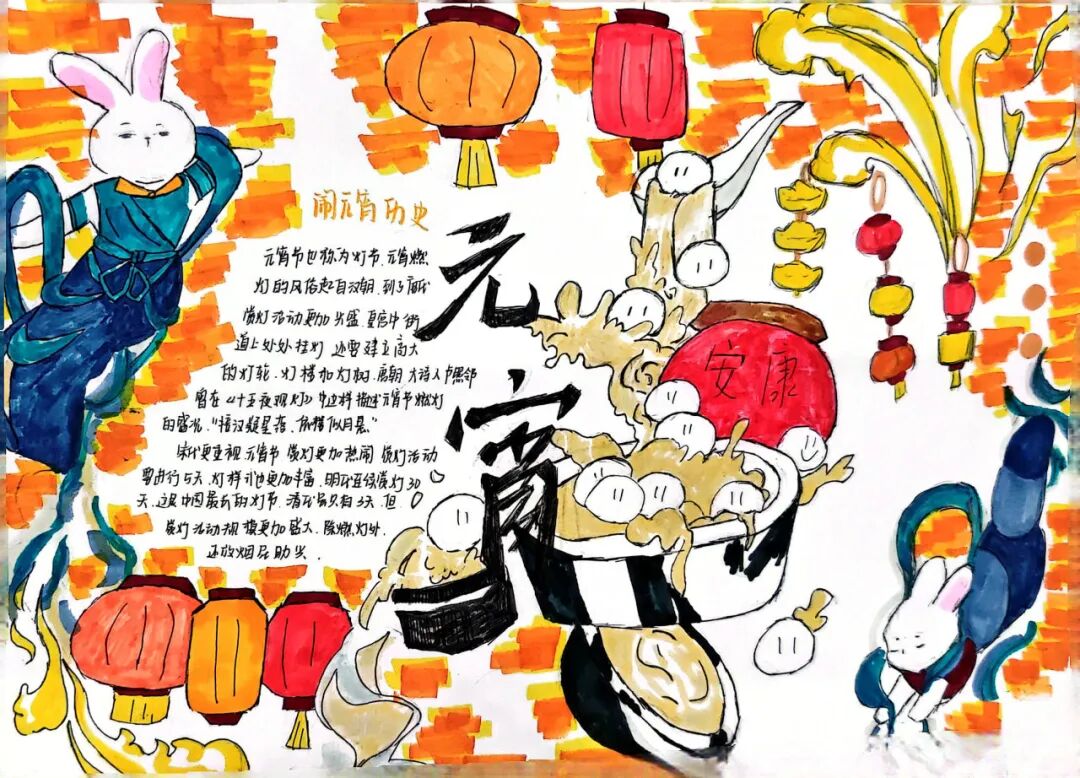 闹元宵历史
元宵节也称为灯节,元宵燃
灯的风俗起自汉朝,到了唐代
赏灯活动更加兴盛,皇宫中街
道上处处挂灯 还要建立高大
的灯轮、灯楼和灯树,唐朝大诗人卢照邻
曾在《十五夜观灯》中这样描述元宵节燃灯
的盛况,"接汉疑星落,依楼似月悬。"
宋代更重视元宵节 赏灯更加热闹 赏灯活动
要进行5天,灯样式也更加丰富,明代连续赏灯30
天,这是中国最长的灯节,清代 只有3天,但
赏灯活动规模更加盛大,除燃灯外,
还放烟花助兴.
元
宵
安康